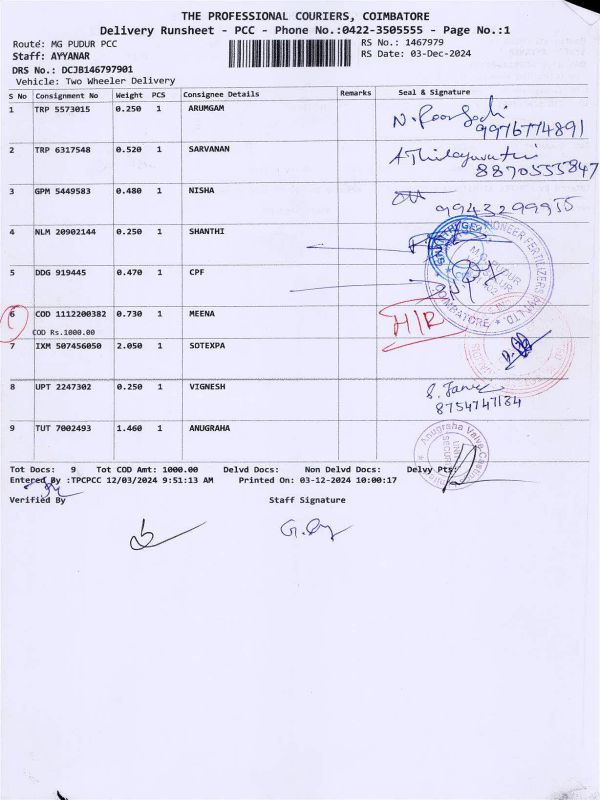 THE PROFESSIONAL COURIERS, COIMBATORE
Delivery Runsheet - PCC - Phone No.:0422-3505555 - Page No.:1
Route: MG PUDUR PCC
RS No.: 1467979
Staff: AYYANAR
RS Date: 03-Dec-2024
DRS No.: DCJB146797901
Vehicle: Two Wheeler Delivery
S No Consignment No Weight PCS Consignee Details Remarks Seal & Signature
1 TRP 5573015 0.250 1 ARUMGAM
9976774891
2 TRP 6317548 0.520 1 SARVANAN
8870555847
3 GPM 5449583 0.480 1 NISHA
9943299955
4 NLM 20902144 0.250 1 SHANTHI
5 DDG 919445 0.470 1 CPF
6 COD 1112200382 0.730 1 MEENA H/R
COD Rs.1000.00
7 IXM 507456050 2.050 1 SOTEXPA
8 UPT 2247302 0.250 1 VIGNESH
8754747184
9 TUT 7002493 1.460 1 ANUGRAHA
Tot Docs: 9 Tot COD Amt: 1000.00 Delvd Docs: Non Delvd Docs: Delvy Pts:
Entered By :TPCPCC 12/03/2024 9:51:13 AM Printed On: 03-12-2024 10:00:17
Verified By Staff Signature